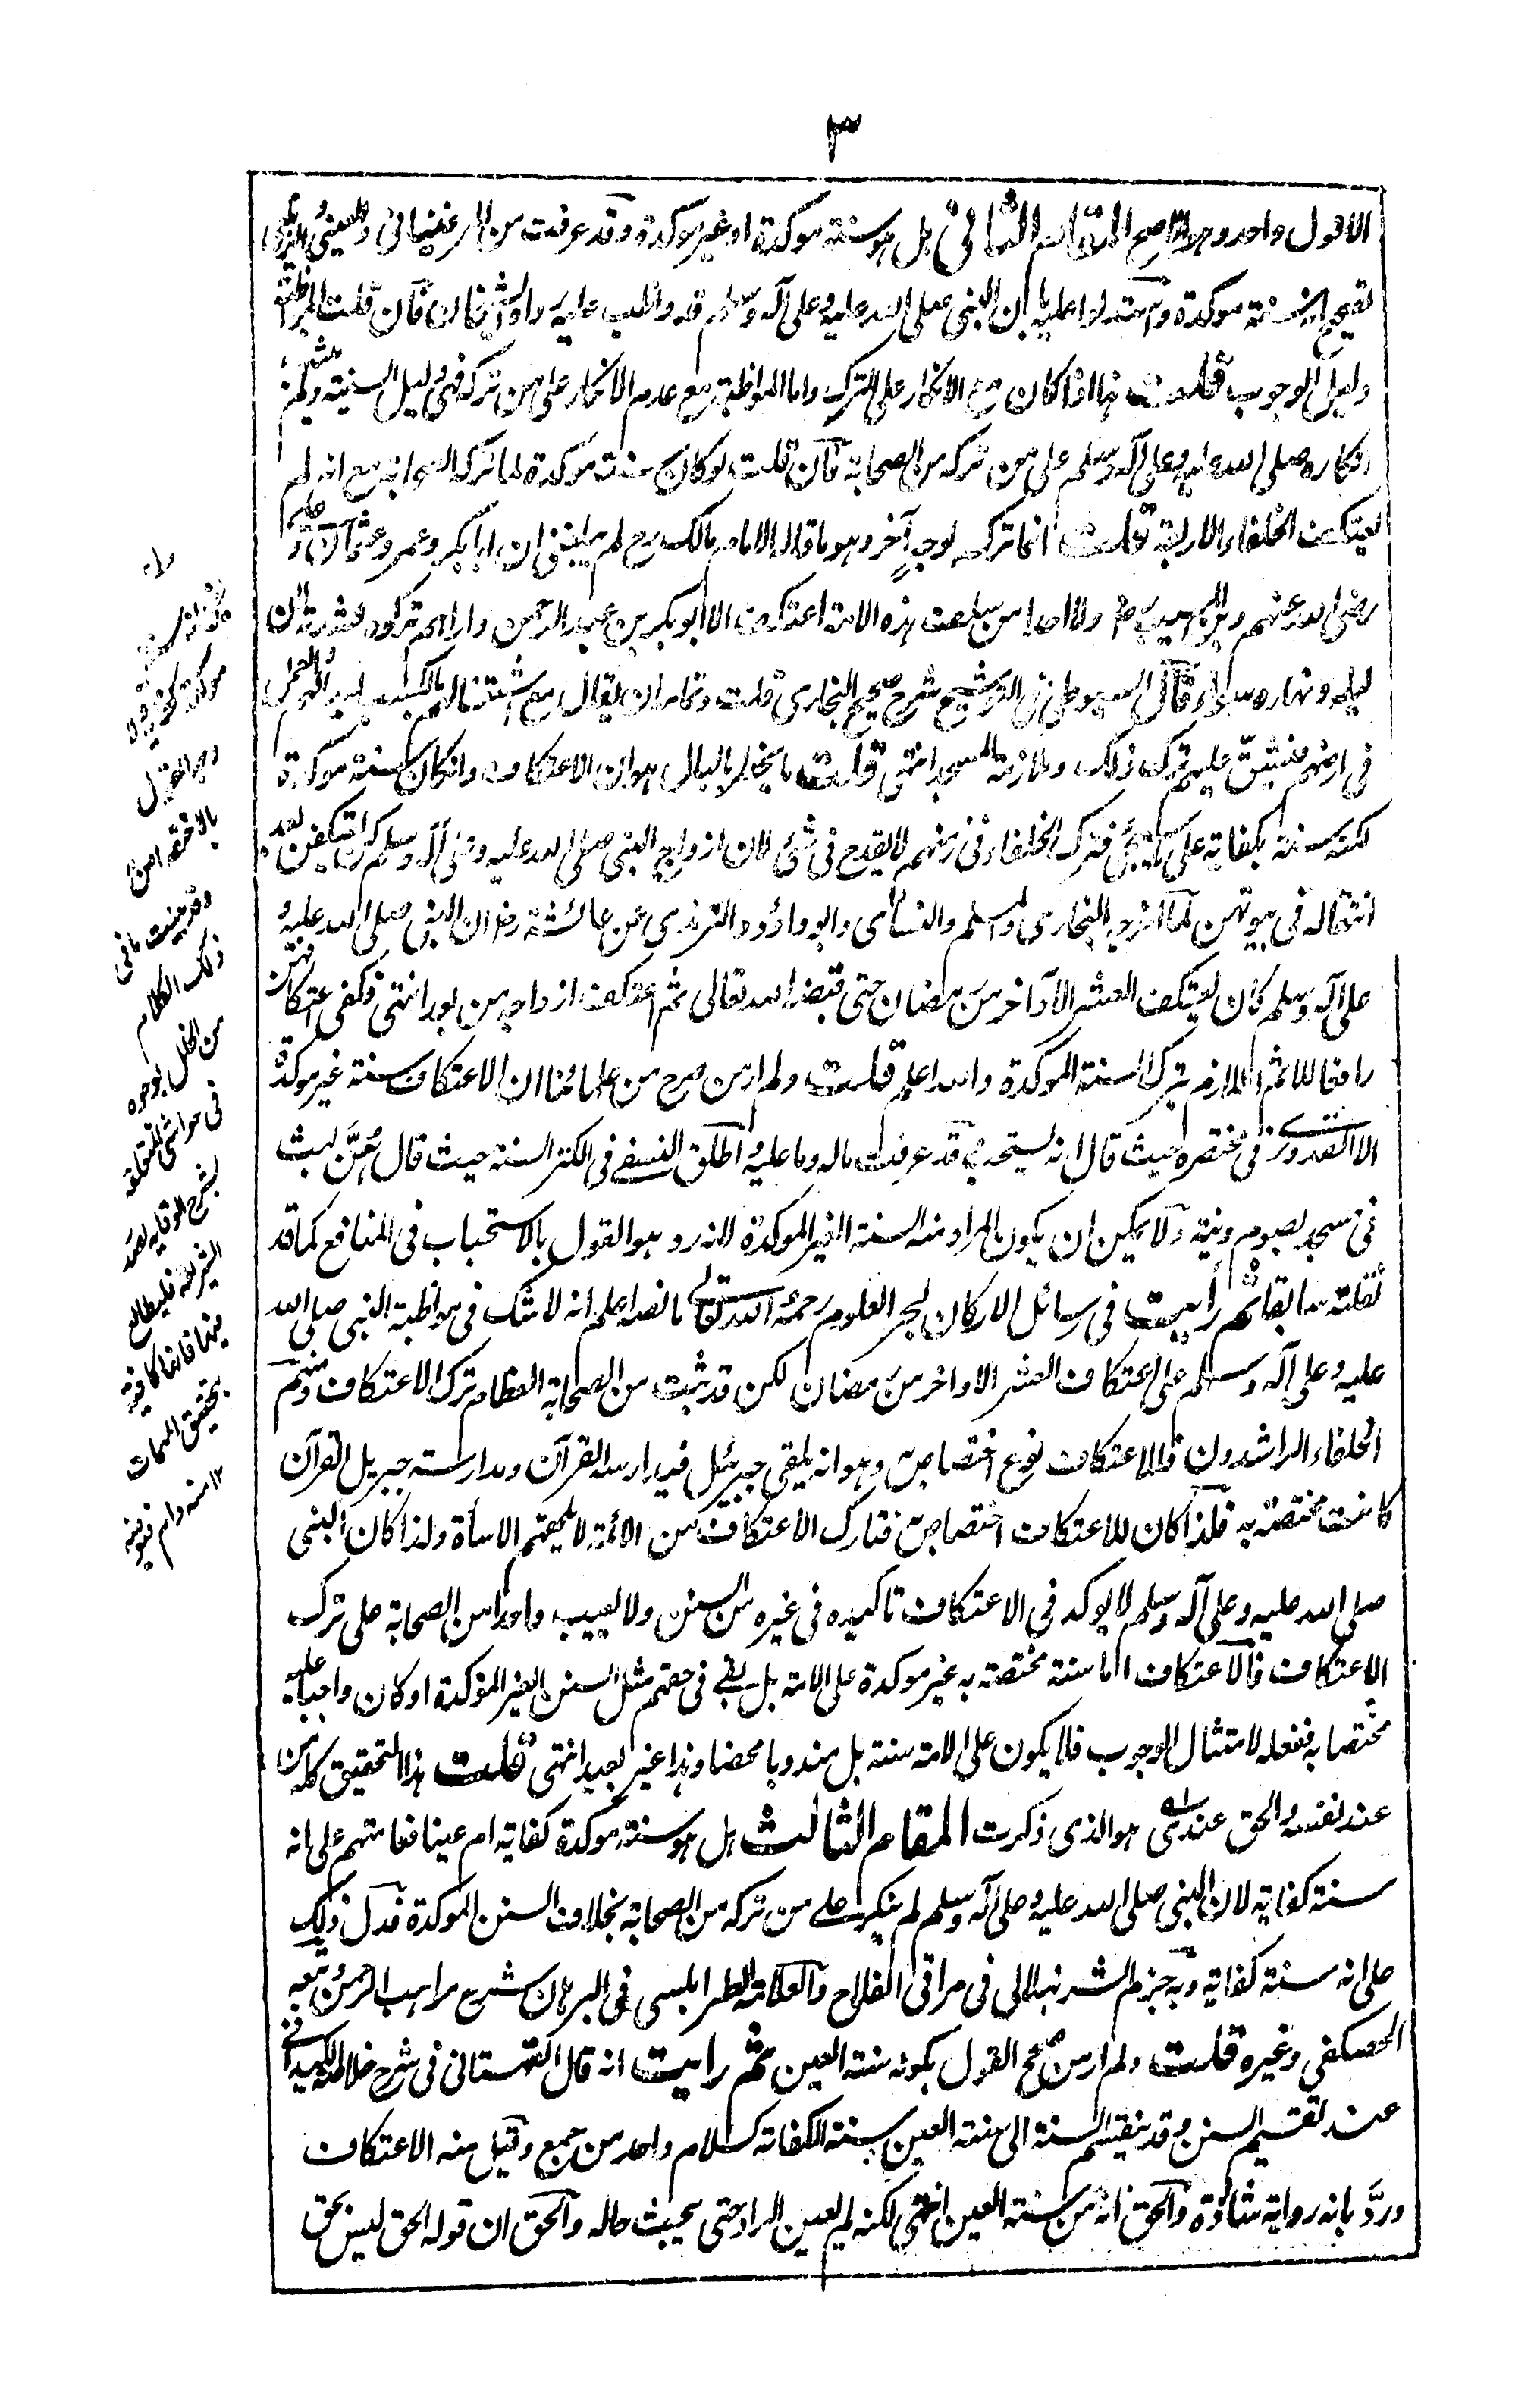 ٣
الاقول واحد وهو الاصح المقام الثاني هل هو سنة موكدة او غير موكدة وقد عرفت من المرغيناني والعيني
تصحيح انه سنة موكدة واستدلوا عليه بان النبي صلى الله عليه وعلى آله وسلم قد واظب عليه فان قلت المواظبة
دليل الوجوب قلت هذا اذا كان مع الانكار على الترك واما المواظبة مع عدم الانكار على من تركه فهي دليل السنية ولم يثبت
انكاره صلى الله عليه وعلى آله وسلم على من تركه من الصحابة فان قلت لو كان سنة موكدة لما تركه الصحابة مع انه لم
يعتكف الخلفاء الاربعة قلت انما تركه لوجه آخر وهو ما قال الامام مالك رح لم يبلغني ان ابا بكر وعمر وعثمان وعلي
رضي الله عنهم وابن المسيب ولا احدا من سلف هذه الامة اعتكف الا ابو بكر بن عبد الرحمن واراهم تركوه لشدته لان
ليله ونهاره سواء وقال السيوطي في التوشيح شرح صحيح البخاري قلت وتمامه ان يقال مع اشتغالهم بالكسب لعيالهم والعمل
في ارضهم فيشق عليهم ترك ذلك وملازمة المسجد انتهى قلت ما يخطر بالبال هو ان الاعتكاف وان كان سنة موكدة
لكنه سنة كفاية على ما سيجئ فترك الخلفاء في زمنهم لا يقدح في شئ لان ازواج النبي صلى الله عليه وعلى آله وسلم كن يعتكفن بعد
انتقاله في بيوتهن لما اخرجه البخاري ومسلم والنسائي وابو داؤد والترمذي عن عائشة رض ان النبي صلى الله عليه و
على آله وسلم كان يعتكف العشر الاواخر من رمضان حتى قبضه الله تعالى ثم اعتكفت ازواجه من بعده انتهى فكفى اعتكافهن
رافعا للاثم اللازم بترك السنة الموكدة والله اعلم قلت ولم ار من صرح من علمائنا ان الاعتكاف سنة غير موكدة
الا القدوري في مختصره حيث قال انه يستحب وقد عرفت ما له وما عليه واطلق النسفي في الكنز السنة حيث قال سُنَّ لبث
في مسجد بصوم ونية ولا يمكن ان يكون المراد منه السنة الغير الموكدة لانه رد هو القول بالاستحباب في المنافع كما قد
نقلته سابقا ثم رأيت في رسائل الاركان لبحر العلوم رحمه الله تعالى ما نصه اعلم انه لا شك في مواظبة النبي صلى الله
عليه وعلى آله وسلم على اعتكاف العشر الاواخر من رمضان لكن قد ثبت من الصحابة العظام ترك الاعتكاف ومنهم
الخلفاء الراشدون فالاعتكاف نوع اختصاص وهو انه يلقى جبرئيل فيدارسه القرآن ومدارسة جبريل القرآن
كانت مختصة به فلذا كان للاعتكاف اختصاص فتارك الاعتكاف من الأمة لا يلحقهم الاساءة ولذا كان النبي
صلى الله عليه وعلى آله وسلم لا يوكد في الاعتكاف تاكيده في غيره من السنن ولا يعيب واحدا من الصحابة على ترك
الاعتكاف فالاعتكاف اما سنة مختصة به غير موكدة على الامة بل بقي في حقهم مثل السنن الغير المؤكدة او كان واجبا عليه
مختصا به ففعله لامتثال الوجوب فلا يكون على الامة سنة بل مندوبا محضا وهذا غير بعيد انتهى قلت هذا التحقيق كله من
عند نفسه والحق عندي هو الذي ذكرت المقام الثالث هل هو سنة موكدة كفاية ام عينا فعامتهم على انه
سنة كفاية لان النبي صلى الله عليه وعلى آله وسلم لم ينكر على من تركه من الصحابة بخلاف السنن الموكدة فدل ذلك
على انه سنة كفاية وبه جزم الشرنبلالي في مراقي الفلاح والعلامة الطرابلسي في البرهان شرح مواهب الرحمن وتبعه
الحصكفي وغيره قلت ولم ار من صحح القول بكونه سنة العين ثم رأيت انه قال القهستاني في شرح خلاصة الكيداني
عند تقسيم السنن وقد ينقسم السنة الى سنة العين وسنة الكفاية كسلام واحد من جمع وقيل منه الاعتكاف
وردَّ بانه رواية شاذة والحق انه من سنة العين انتهى لكنه لم يعين الراد حتى يبحث حاله والحق ان قوله الحق ليس بحق
موكدة
وقد بينت ما في
ذلك الكلام
من الخلل بوجوه
في حواشي المتعلقة
بشرح الوقاية لصدر
الشريعة فليطالع
فيها فانها كافية
بتحقيق المهمات
١٢ منه دام فيوضه